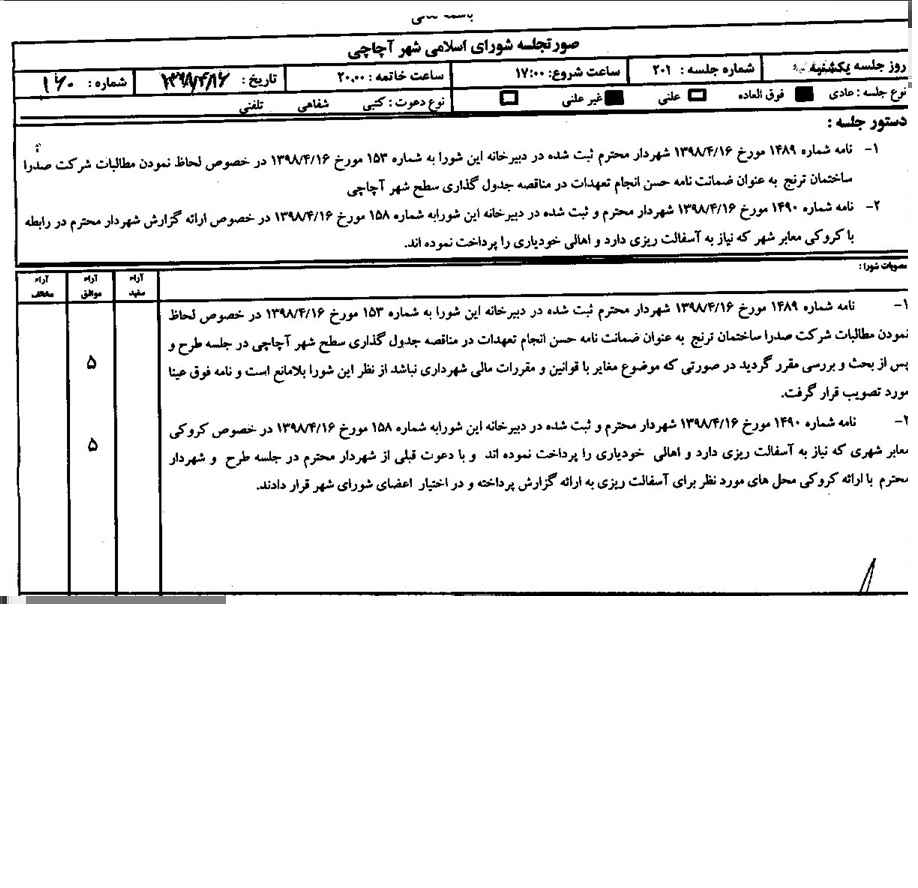 باسمه تعالی
صورتجلسه شورای اسلامی شهر آچاچی
روز جلسه یکشنبه
شماره جلسه : ۲۰۱
ساعت شروع: ۱۷:۰۰
ساعت خاتمه : ۲۰,۰۰
تاریخ : ۱۳۹۸/۴/۱۶
شماره : ۱۶۰
نوع جلسه : عادی فوق العاده علنی غیر علنی
نوع دعوت : کتبی شفاهی تلفنی
دستور جلسه :
۱- نامه شماره ۱۴۸۹ مورخ ۱۳۹۸/۴/۱۶ شهردار محترم ثبت شده در دبیرخانه این شورا به شماره ۱۵۳ مورخ ۱۳۹۸/۴/۱۶ در خصوص لحاظ نمودن مطالبات شرکت صدرا
ساختمان ترنج به عنوان ضمانت نامه حسن انجام تعهدات در مناقصه جدول گذاری سطح شهر آچاچی
۲- نامه شماره ۱۴۹۰ مورخ ۱۳۹۸/۴/۱۶ شهردار محترم و ثبت شده در دبیرخانه این شورابه شماره ۱۵۸ مورخ ۱۳۹۸/۴/۱۶ در خصوص ارائه گزارش شهردار محترم در رابطه
با کروکی معابر شهر که نیاز به آسفالت ریزی دارد و اهالی خودیاری را پرداخت نموده اند.
مصوبات شورا :
آراء سفید
آراء موافق
آراء مخالف
۱- نامه شماره ۱۴۸۹ مورخ ۱۳۹۸/۴/۱۶ شهردار محترم ثبت شده در دبیرخانه این شورا به شماره ۱۵۳ مورخ ۱۳۹۸/۴/۱۶ در خصوص لحاظ
نمودن مطالبات شرکت صدرا ساختمان ترنج به عنوان ضمانت نامه حسن انجام تعهدات در مناقصه جدول گذاری سطح شهر آچاچی در جلسه طرح و
پس از بحث و بررسی مقرر گردید در صورتی که موضوع مغایر با قوانین و مقررات مالی شهرداری نباشد از نظر این شورا بلامانع است و نامه فوق عینا
مورد تصویب قرار گرفت.
۵
۲- نامه شماره ۱۴۹۰ مورخ ۱۳۹۸/۴/۱۶ شهردار محترم و ثبت شده در دبیرخانه این شورابه شماره ۱۵۸ مورخ ۱۳۹۸/۴/۱۶ در خصوص کروکی
معابر شهری که نیاز به آسفالت ریزی دارد و اهالی خودیاری را پرداخت نموده اند و با دعوت قبلی از شهردار محترم در جلسه طرح و شهردار
محترم با ارائه کروکی محل های مورد نظر برای آسفالت ریزی به ارائه گزارش پرداخته و در اختیار اعضای شورای شهر قرار دادند.
۵